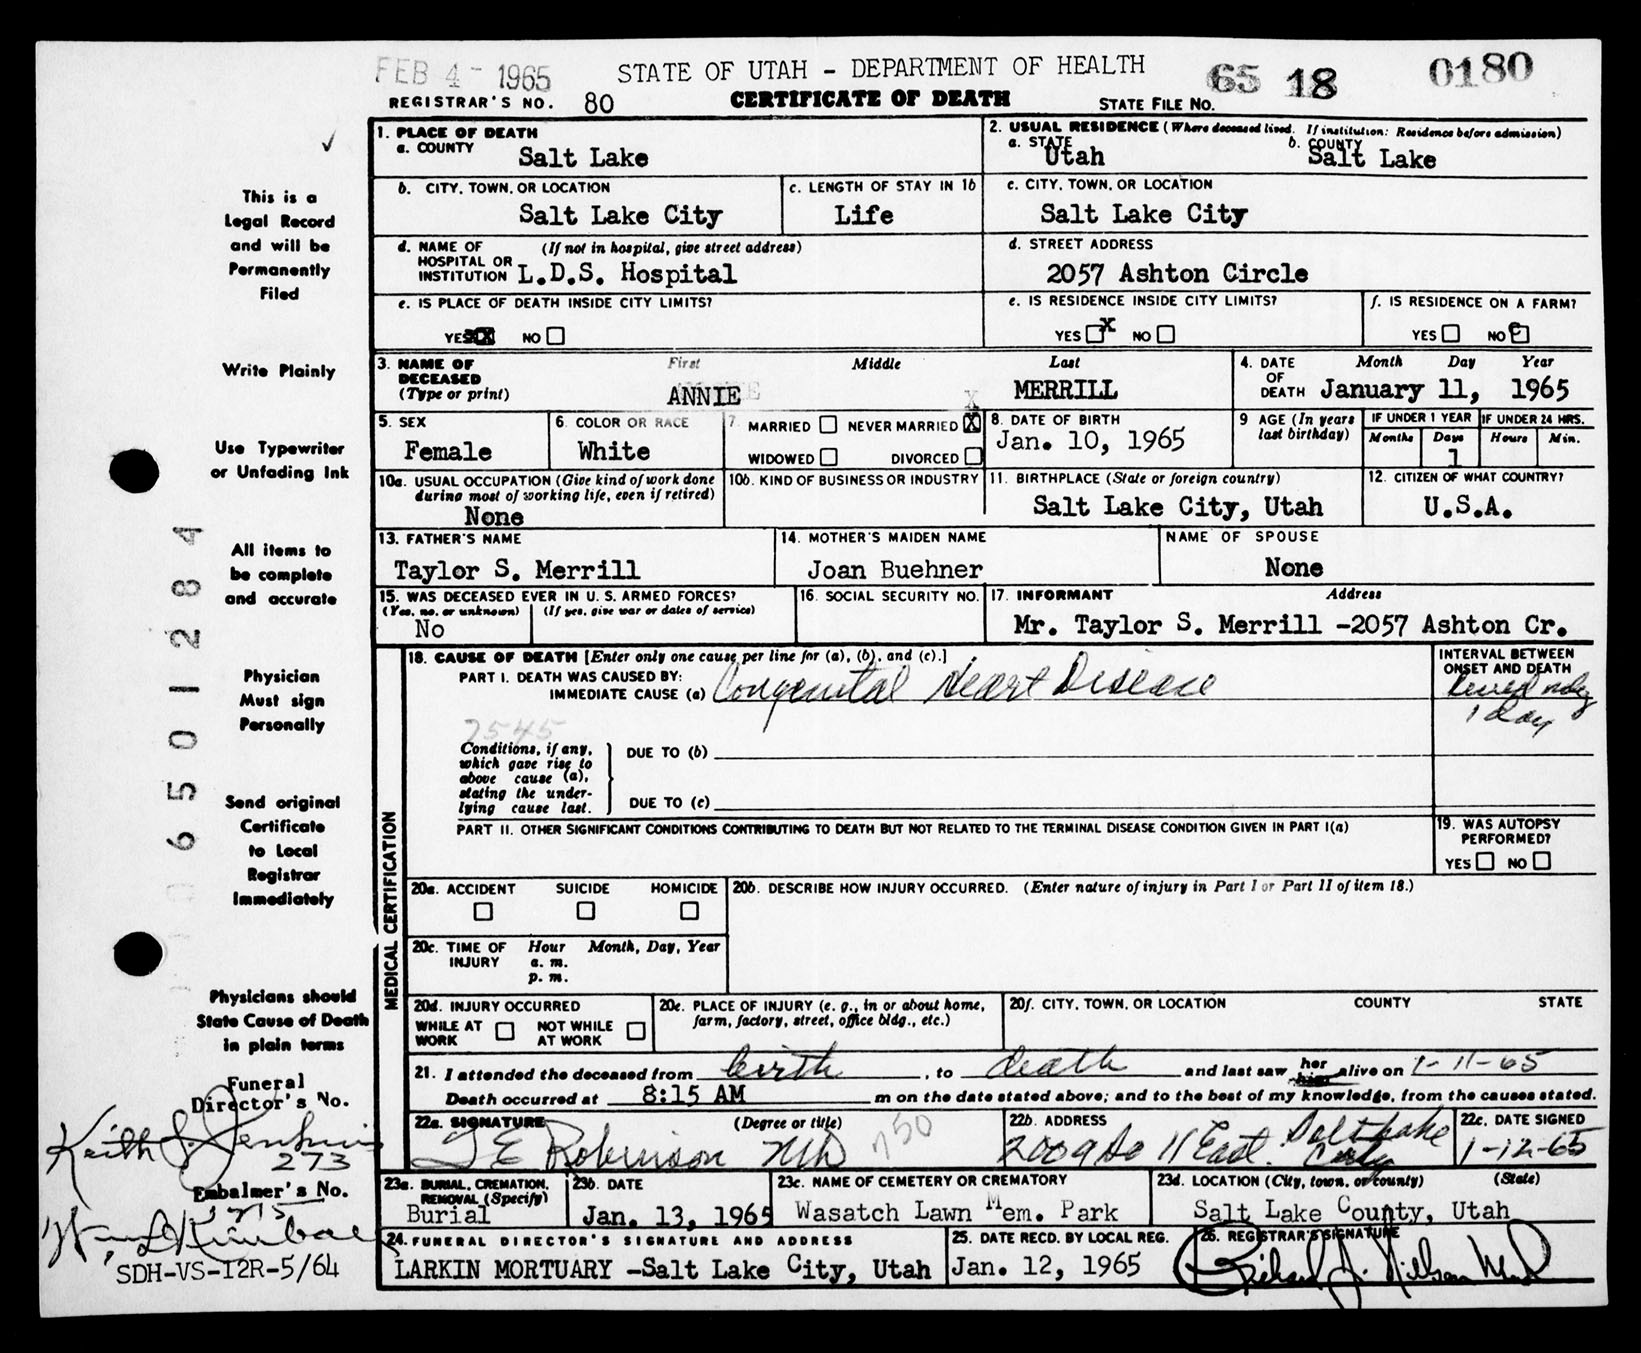 FEB 4 - 1965 STATE OF UTAH - DEPARTMENT OF HEALTH 65 18 0180
REGISTRAR'S NO. 80 CERTIFICATE OF DEATH STATE FILE NO.
1. PLACE OF DEATH
a. COUNTY Salt Lake
2. USUAL RESIDENCE (Where deceased lived. If institution: Residence before admission)
a. STATE Utah b. COUNTY Salt Lake
b. CITY, TOWN, OR LOCATION Salt Lake City
c. LENGTH OF STAY IN 1b Life
c. CITY, TOWN, OR LOCATION Salt Lake City
d. NAME OF HOSPITAL OR INSTITUTION (If not in hospital, give street address) L.D.S. Hospital
d. STREET ADDRESS 2057 Ashton Circle
e. IS PLACE OF DEATH INSIDE CITY LIMITS?
YES X NO
e. IS RESIDENCE INSIDE CITY LIMITS?
YES x NO
f. IS RESIDENCE ON A FARM?
YES NO
3. NAME OF DECEASED (Type or print)
First Middle Last
ANNIE MERRILL
4. DATE OF DEATH Month Day Year
January 11, 1965
5. SEX Female
6. COLOR OR RACE White
7. MARRIED NEVER MARRIED X
WIDOWED DIVORCED
8. DATE OF BIRTH Jan. 10, 1965
9 AGE (In years last birthday)
IF UNDER 1 YEAR IF UNDER 24 HRS.
Months Days Hours Min.
1
10a. USUAL OCCUPATION (Give kind of work done during most of working life, even if retired)
None
10b. KIND OF BUSINESS OR INDUSTRY
11. BIRTHPLACE (State or foreign country)
Salt Lake City, Utah
12. CITIZEN OF WHAT COUNTRY?
U.S.A.
13. FATHER'S NAME
Taylor S. Merrill
14. MOTHER'S MAIDEN NAME
Joan Buehner
NAME OF SPOUSE
None
15. WAS DECEASED EVER IN U. S. ARMED FORCES?
(Yes, no, or unknown) (If yes, give war or dates of service)
No
16. SOCIAL SECURITY NO.
17. INFORMANT Address
Mr. Taylor S. Merrill -2057 Ashton Cr.
MEDICAL CERTIFICATION
18. CAUSE OF DEATH [Enter only one cause per line for (a), (b), and (c).]
PART I. DEATH WAS CAUSED BY:
IMMEDIATE CAUSE (a) Congenital Heart Disease
INTERVAL BETWEEN ONSET AND DEATH
1 day
7545
Conditions, if any, which gave rise to above cause (a), stating the underlying cause last.
DUE TO (b)
DUE TO (c)
PART II. OTHER SIGNIFICANT CONDITIONS CONTRIBUTING TO DEATH BUT NOT RELATED TO THE TERMINAL DISEASE CONDITION GIVEN IN PART I(a)
19. WAS AUTOPSY PERFORMED?
YES NO
20a. ACCIDENT SUICIDE HOMICIDE
20b. DESCRIBE HOW INJURY OCCURRED. (Enter nature of injury in Part I or Part II of item 18.)
20c. TIME OF INJURY Hour Month, Day, Year
a. m.
p. m.
20d. INJURY OCCURRED
WHILE AT WORK NOT WHILE AT WORK
20e. PLACE OF INJURY (e. g., in or about home, farm, factory, street, office bldg., etc.)
20f. CITY, TOWN, OR LOCATION COUNTY STATE
21. I attended the deceased from birth, to death and last saw her him alive on 1-11-65
Death occurred at 8:15 AM m on the date stated above; and to the best of my knowledge, from the causes stated.
22a. SIGNATURE (Degree or title)
E Robinson MD n50
22b. ADDRESS
2009 So 11 East. Salt Lake City
22c. DATE SIGNED
1-12-65
23a. BURIAL, CREMATION, REMOVAL (Specify)
Burial
23b. DATE
Jan. 13, 1965
23c. NAME OF CEMETERY OR CREMATORY
Wasatch Lawn Mem. Park
23d. LOCATION (City, town, or county) (State)
Salt Lake County, Utah
24. FUNERAL DIRECTOR'S SIGNATURE AND ADDRESS
LARKIN MORTUARY -Salt Lake City, Utah
25. DATE RECD. BY LOCAL REG.
Jan. 12, 1965
26. REGISTRAR'S SIGNATURE
This is a
Legal Record
and will be
Permanently
Filed
Write Plainly
Use Typewriter
or Unfading Ink
All items to
be complete
and accurate
Physician
Must sign
Personally
Send original
Certificate
to Local
Registrar
Immediately
Physicians should
State Cause of Death
in plain terms
Funeral
Director's No.
Keith J. Jenkins
273
Embalmer's No.
SDH-VS-12R-5/64
06501284